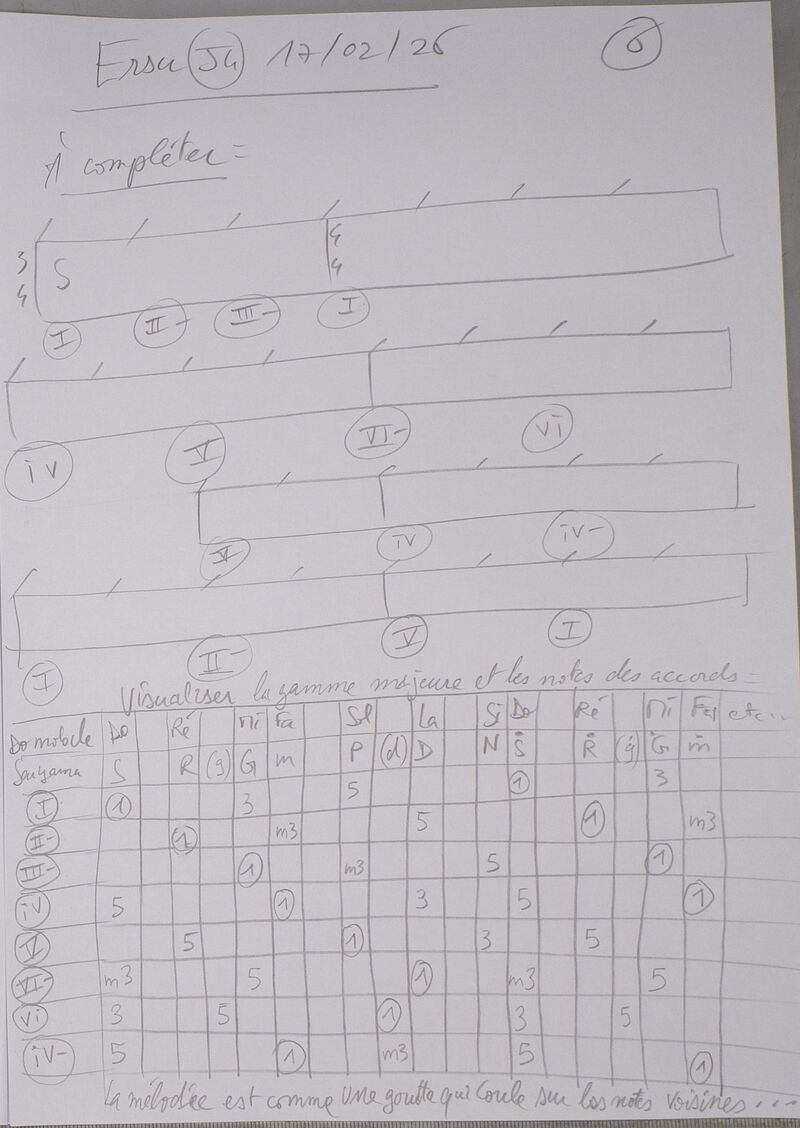 Ersu J4 17/02/26 6
À compléter =
3 4
4 S 4
I II- III- I
iv V VI- vi
V iv iv-
I II- V I
Visualiser la gamme majeure et les notes des accords =
Do mobile Do Ré Mi Fa Sol La Si Do Ré Mi Fa etc...
Sargama S R (g) G m P (d) D N Ṡ Ṙ (ġ) Ġ ṁ
I 1 3 5 1 3
II- 1 m3 5 1 m3
III- 1 m3 5 1
iv 5 1 3 5 1
V 5 1 3 5
VI- m3 5 1 m3 5
vi 3 5 1 3 5
iv- 5 1 m3 5 1
La mélodie est comme une goutte qui coule sur les notes voisines ....